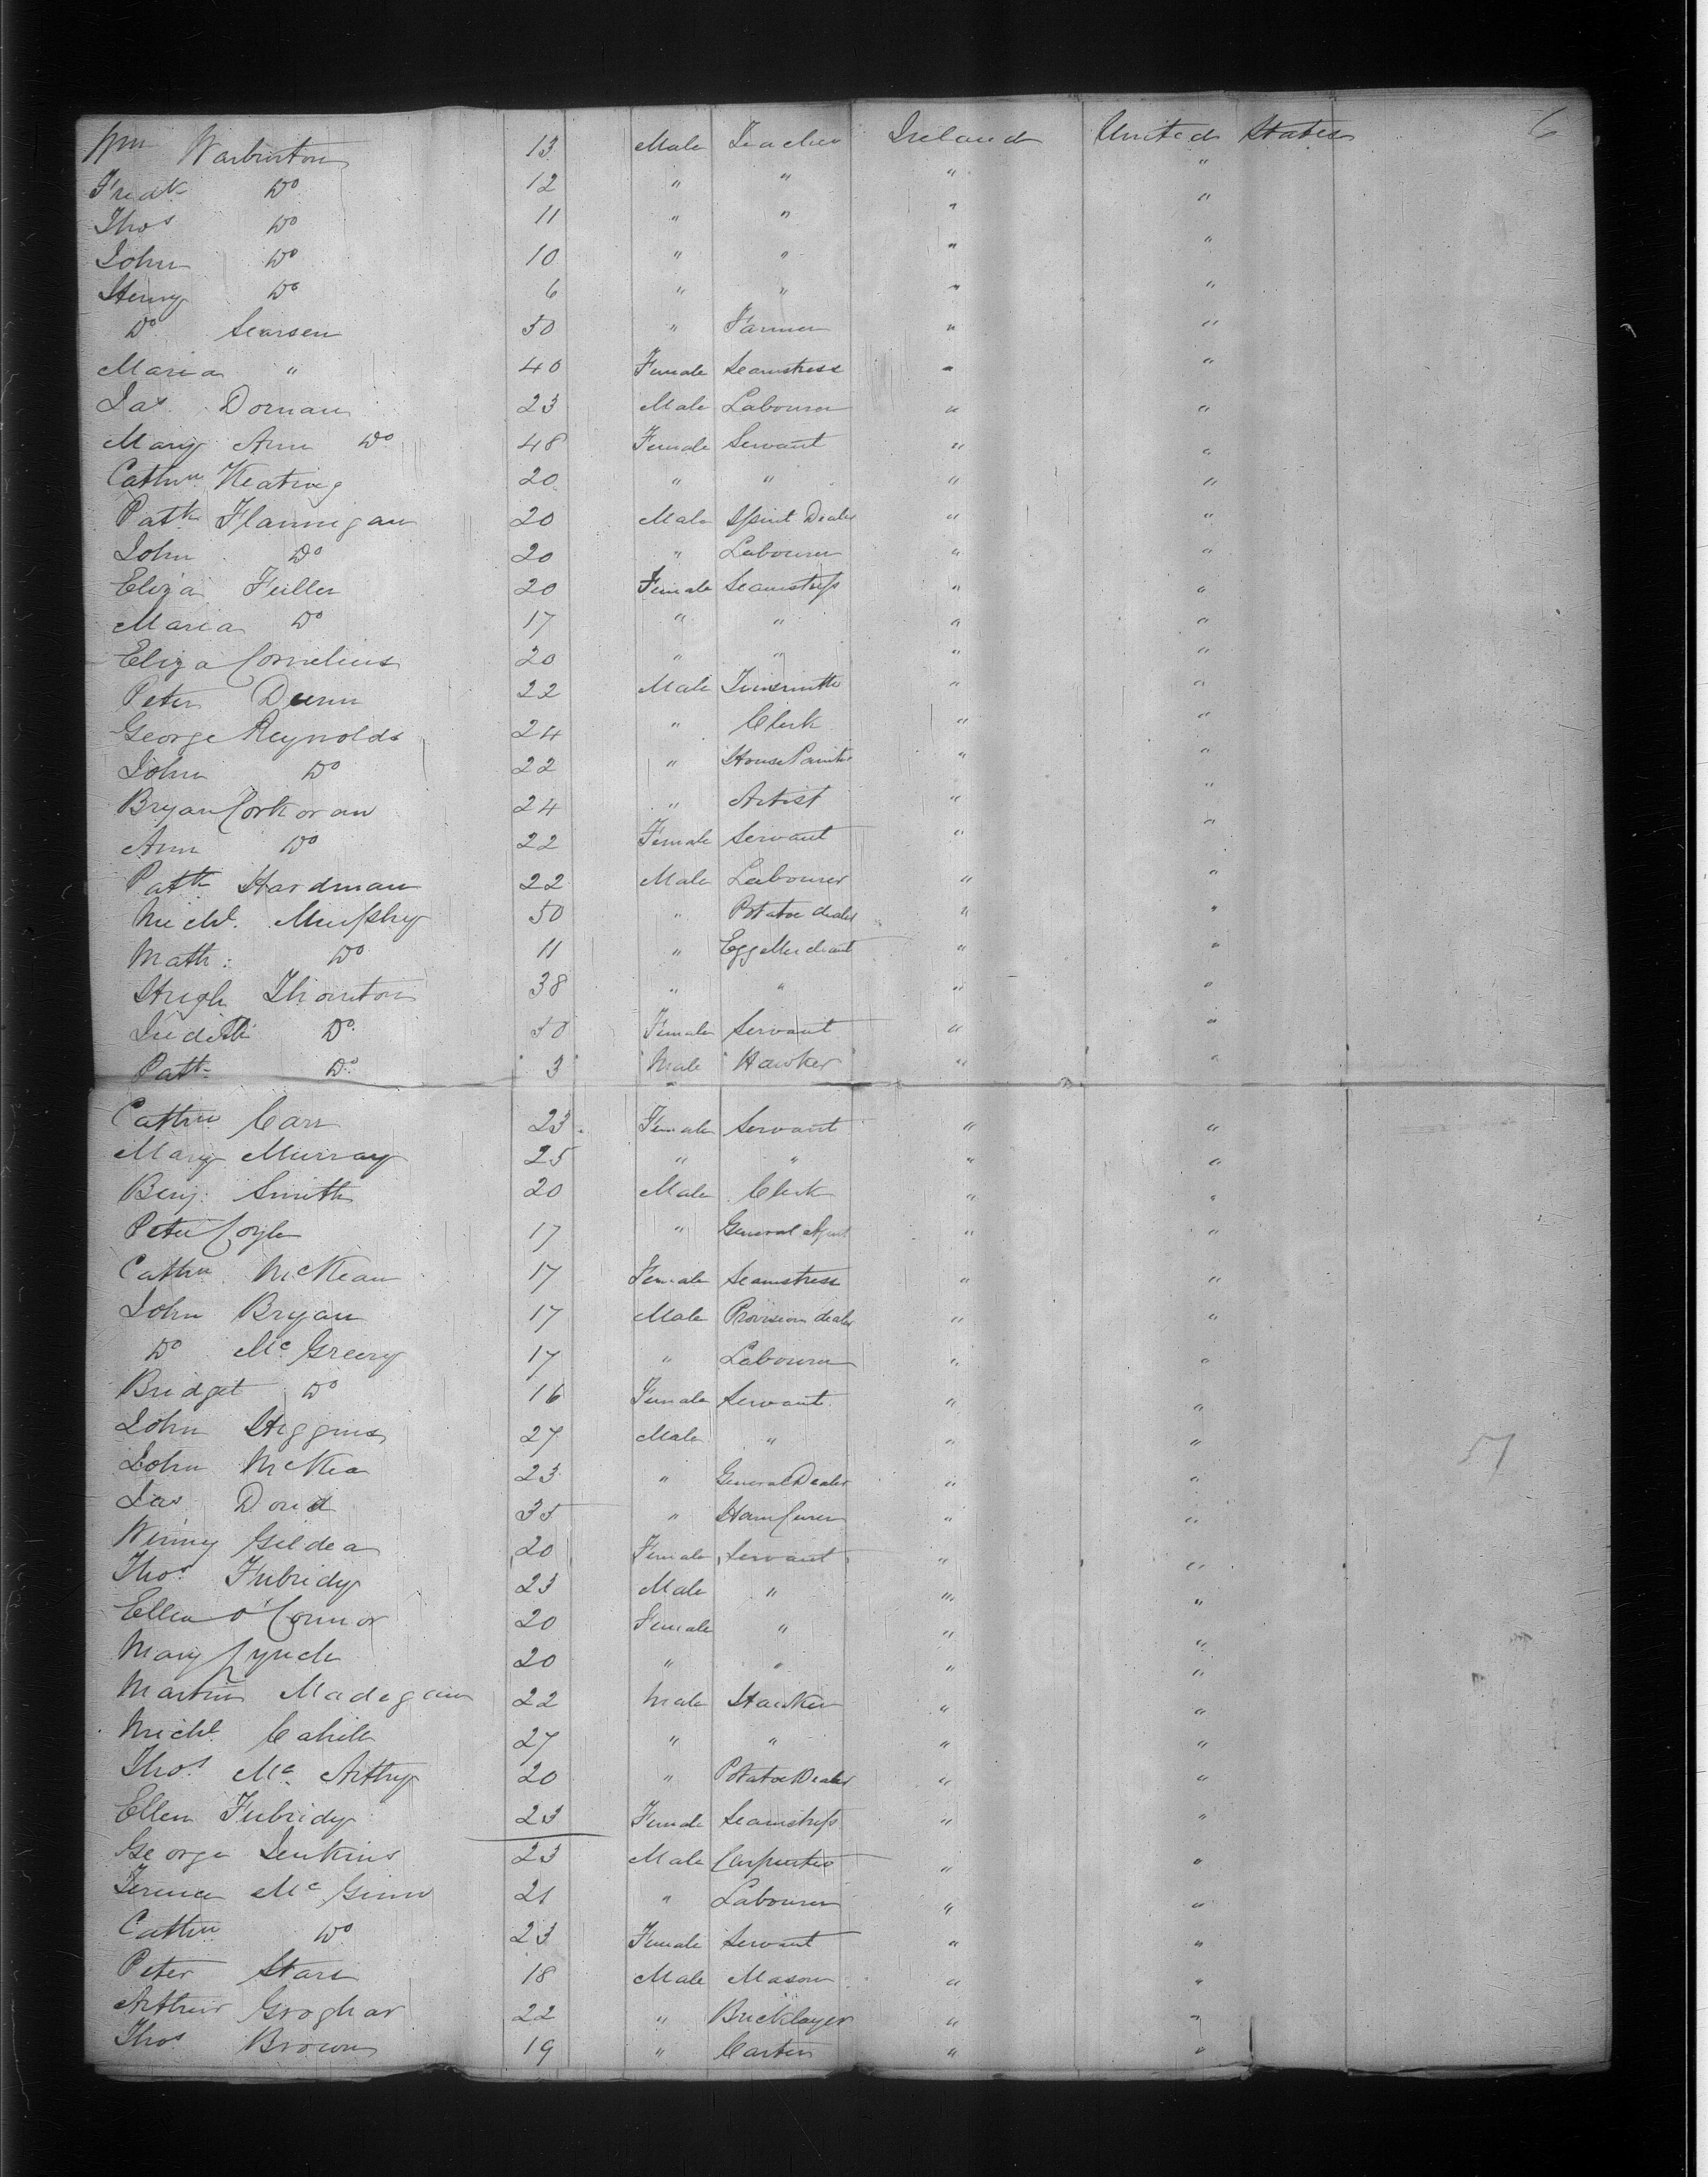 6
Wm Warburton 13 Male Teacher Ireland United States
Fredk Do 12 " " " "
Thos Do 11 " " " "
John Do 10 " " " "
Henry Do 6 " " " "
Do Searsen 50 " Farmer " "
Maria " 40 Female Seamstress " "
Jas. Dornan 23 Male Labourer " "
Mary Ann Do 48 Female Servant " "
Cathne Keating 20 " " " "
Patk Flannigan 20 Male Spirit Dealer " "
John Do 20 " Labourer " "
Eliza Fuller 20 Female Seamstress " "
Maria Do 17 " " " "
Eliza Cornelius 20 " " " "
Peter Dunn 22 Male Tinsmith " "
George Reynolds 24 " Clerk " "
John Do 22 " House Painter " "
Bryan Corkoran 24 " Artist " "
Ann Do 22 Female Servant " "
Patk Hardman 22 Male Labourer " "
Michl. Murphy 50 " Potatoe dealer " "
Math: Do 11 " Egg Merchant " "
Hugh Thornton 38 " " " "
Judith Do. 50 Female Servant " "
Patk Do. 3 Male Hawker " "
Cathne Carr 23 Female Servant " "
Mary Murray 25 " " " "
Benj. Smith 20 Male Clerk " "
Peter Coyle 17 " General Agent " "
Cathne McKean 17 Female Seamstress " "
John Bryan 17 Male Provision dealer " "
Do Mc Greery 17 " Labourer " "
Bridget Do 16 Female Servant " "
John Higgins 27 Male " " "
57
John McKea 23 " General Dealer " "
Jas Doud 35 " Ham Curer " "
Winny Gildea 20 Female Servant " "
Thos. Fubridy 23 Male " " "
Ellen O'Connor 20 Female " " "
Mary Lynch 20 " " " "
Martin Madegan 22 Male Hawker " "
Michl. Cahill 27 " " " "
Thos. Mc Arthy 20 " Potatoe Dealer " "
Ellen Fubridy 23 Female Seamstress " "
George Jenkins 23 Male Carpenter " "
Terence Mc Ginn 21 " Labourer " "
Cathne Do 23 Female Servant " "
Peter Starr 18 Male Mason " "
Arthur Groghar 22 " Bricklayer " "
Thos Brown 19 " Carter " "